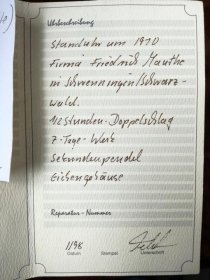 Uhrbeschreibung
Standuhr um 1910
Firma Friedrich Mauthe
in Schwenningen/Schwarz-
wald.
1/2 Stunden-Doppelschlag
7-Tage-Werk
Sekundenpendel
Eichengehäuse
Reparatur-Nummer
1/98
Datum Stempel Unterschrift